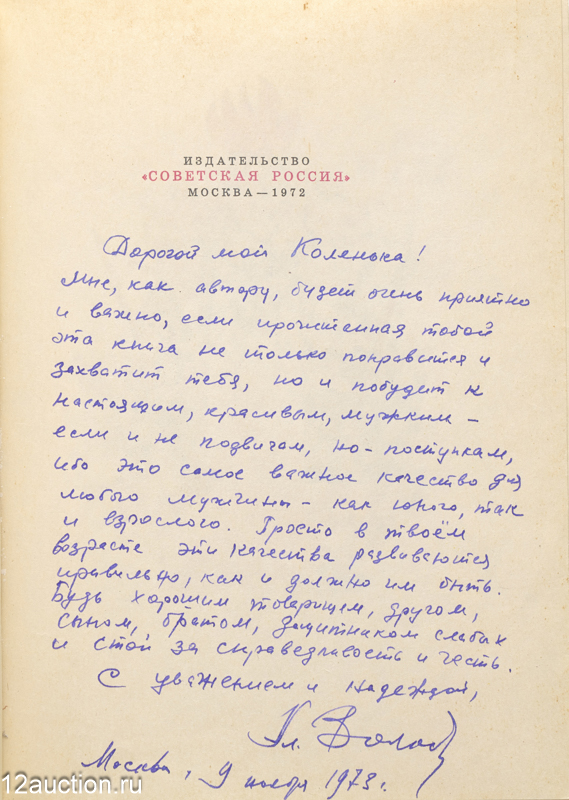 ИЗДАТЕЛЬСТВО
«СОВЕТСКАЯ РОССИЯ»
МОСКВА — 1972
Дорогой мой Коленька!
Мне, как автору, будет очень приятно
и важно, если прочитанная тобой
эта книга не только понравится и
захватит тебя, но и побудит к
настоящим, красивым, мужским –
если и не подвигам, но – поступкам,
ибо это самое важное качество для
любого мужчины – как юного, так
и взрослого. Просто в твоём
возрасте эти качества развиваются
правильно, как и должно им быть.
Будь хорошим товарищем, другом,
сыном, братом, защитником слабых
и стой за справедливость и честь.
С уважением и надеждой,
Москва, 9 ноября 1973.
12auction.ru
12auction.ru